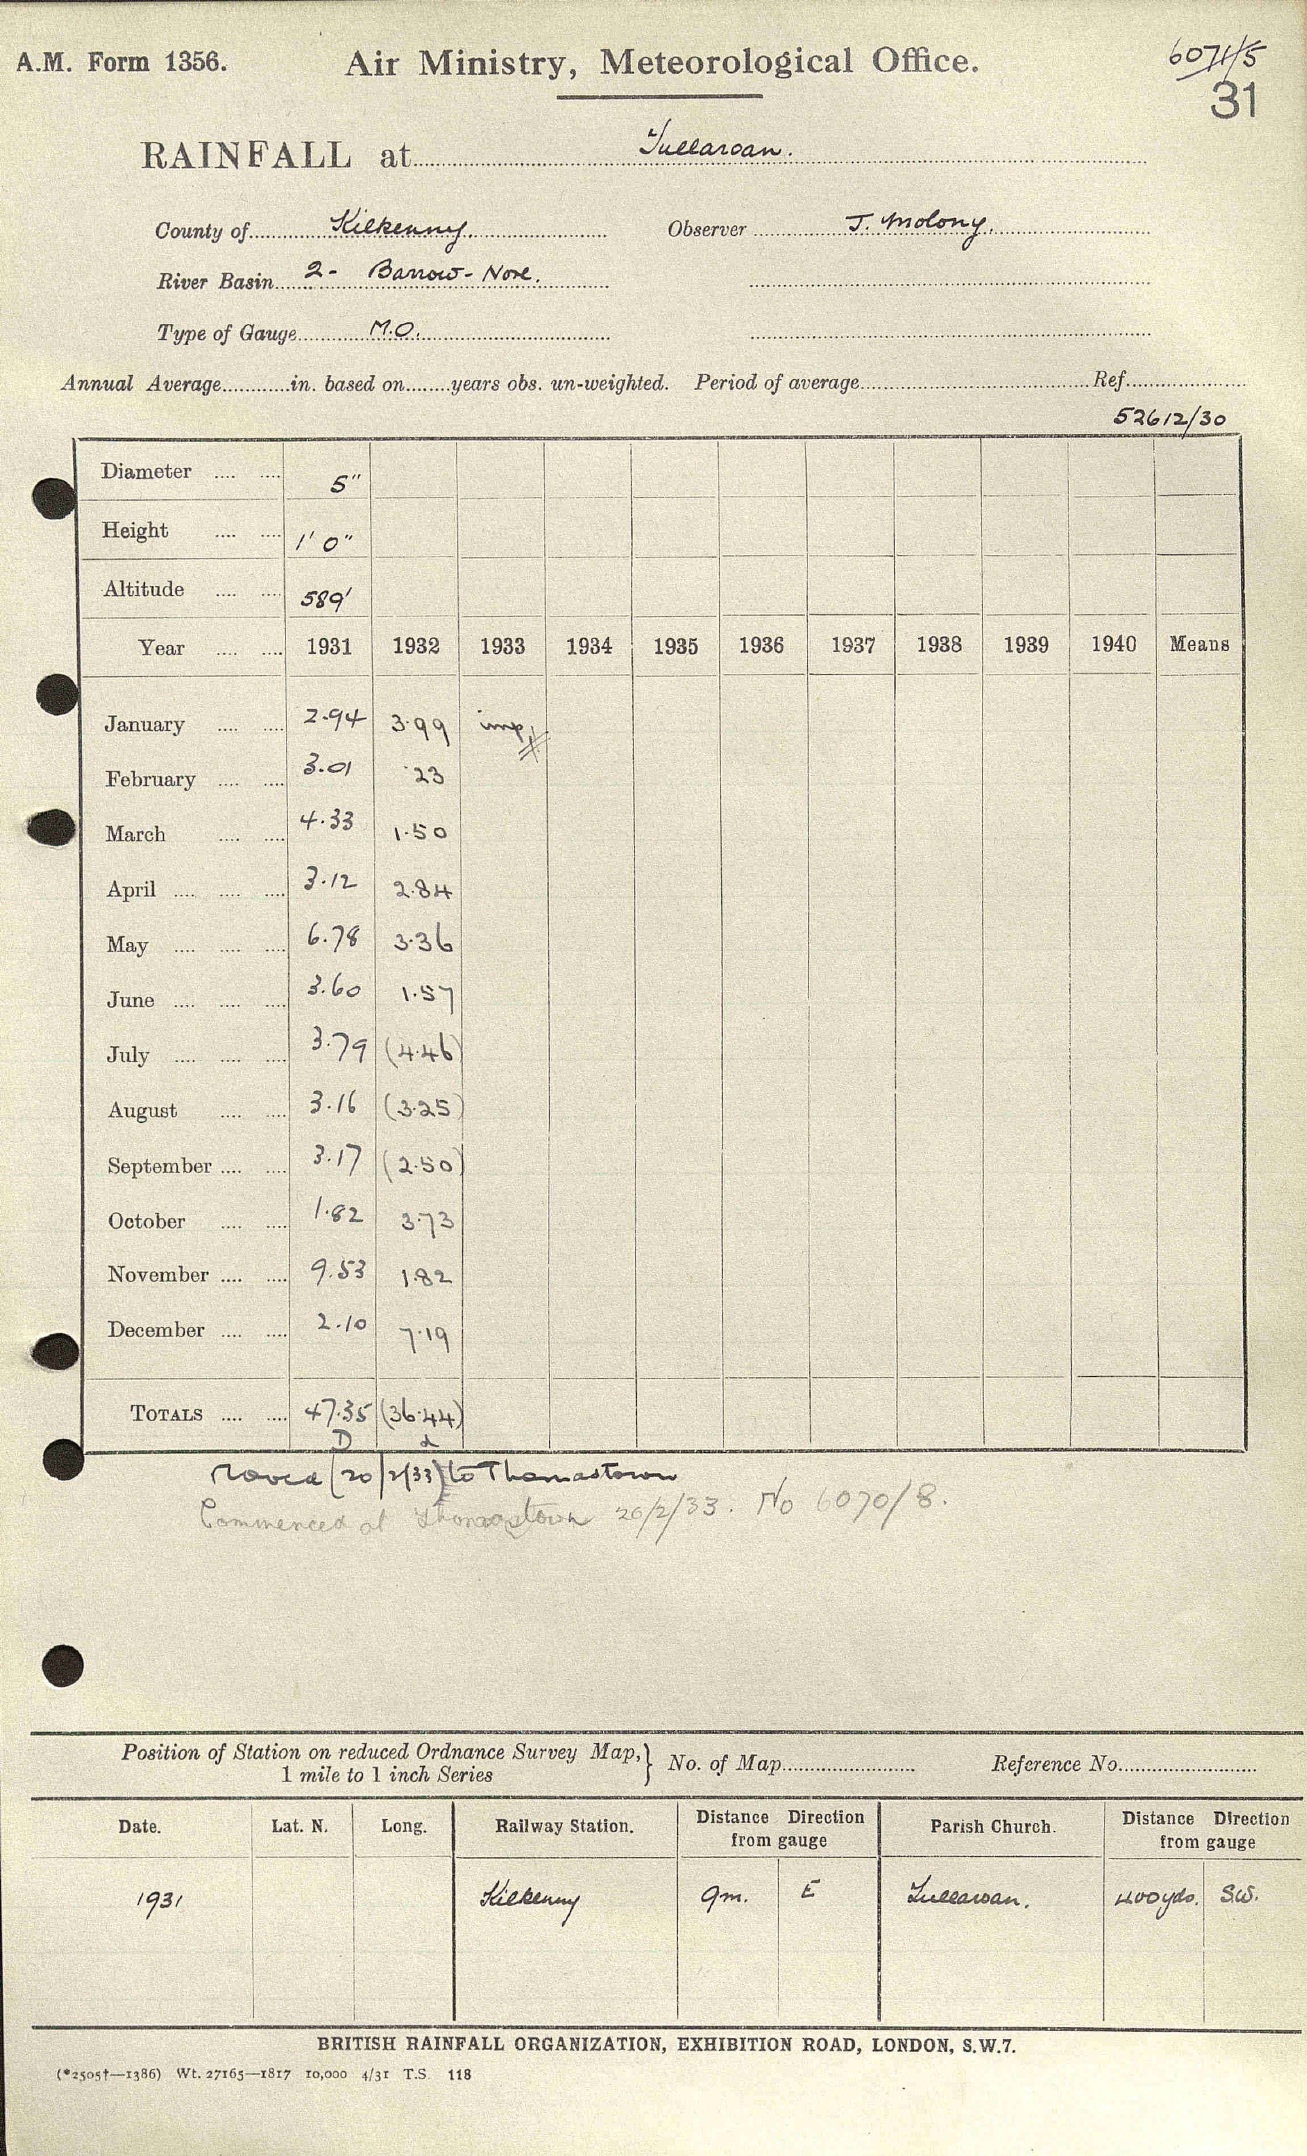 A.M. Form 1356. Air Ministry, Meteorological Office. 6071/5
31
RAINFALL at Tullaroan.
County of Kilkenny. Observer J. Molony.
River Basin 2- Barrow-Nore.
Type of Gauge M.O.
Annual Average............in. based on........years obs. un-weighted. Period of average.................... Ref....................
52612/30
Diameter .... .... 5"
Height .... .... 1' 0"
Altitude .... .... 589'
Year .... .... 1931 1932 1933 1934 1935 1936 1937 1938 1939 1940 Means
January .... .... 2.94 3.99 imp.
February .... .... 3.01 .23
March .... .... 4.33 1.50
April .... .... .... 3.12 2.84
May .... .... .... 6.78 3.36
June .... .... .... 3.60 1.57
July .... .... .... 3.79 (4.46)
August .... .... 3.16 (3.25)
September .... .... 3.17 (2.50)
October .... .... 1.82 3.73
November .... .... 9.53 1.82
December .... .... 2.10 7.19
TOTALS .... .... 47.35 (36.44)
D
Moved (20/2/33) to Thomastown
Commenced at Thomastown 20/2/33. No 6070/8.
Position of Station on reduced Ordnance Survey Map, } No. of Map.................... Reference No....................
1 mile to 1 inch Series
Date. Lat. N. Long. Railway Station. Distance Direction Parish Church. Distance Direction
from gauge from gauge
1931 Kilkenny 9m. E Tullaroan. 400yds. S.W.
BRITISH RAINFALL ORGANIZATION, EXHIBITION ROAD, LONDON, S.W.7.
(*2505†—1386) Wt. 27165—1817 10,000 4/31 T.S. 118